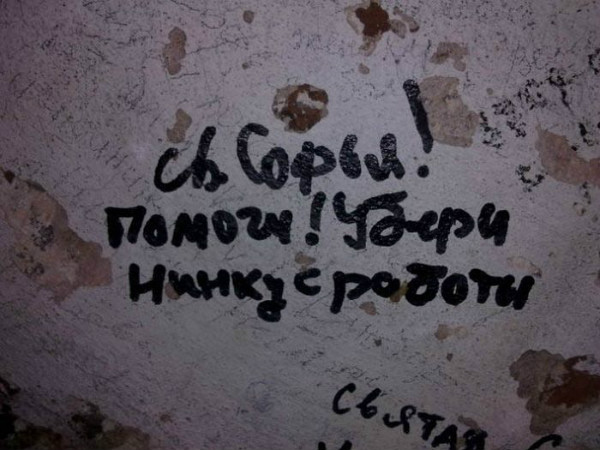 Св Софья!
Помоги! Убери
Нинку с работы
Святая